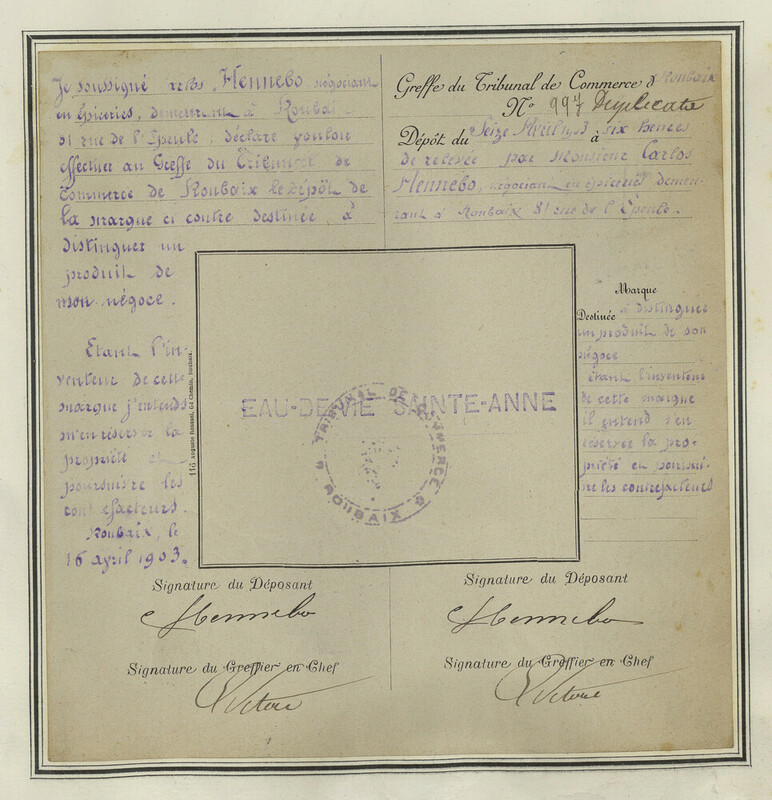 Je soussigné Carlos Hennebo, négociant
en épiceries, demeurant à Roubaix
81 rue de l'Epeule, déclare vouloir
effectuer au Greffe du Tribunal de
Commerce de Roubaix le dépôt de
la marque ci contre destinée, à
distinguer un
produit de
mon négoce.
Etant l'in-
venteur de cette
marque j'entends
m'en réserver la
propriété et
poursuivre les
contrefacteurs.
Roubaix, le
16 avril 1903.
Greffe du Tribunal de Commerce d Roubaix
N° 997 Duplicata
Dépôt du Seize Avril 1903 à six heures
de relevée par Monsieur Carlos
Hennebo, négociant en épiceries demeu-
rant à Roubaix 81 rue de l'Epeule.
Marque
Destinée à distinguer
un produit de son
négoce
étant l'inventeur
de cette marque
il entend s'en
réserver la pro-
priété et poursui-
vre les contrefacteurs
116 Auguste Roussel, Gd Chemin, Roubaix.
EAU-DE-VIE SAINTE-ANNE
TRIBUNAL DE COMMERCE
ROUBAIX
Signature du Déposant
Hennebo
Signature du Greffier en Chef
Signature du Déposant
Hennebo
Signature du Greffier en Chef